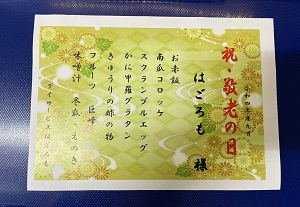 祝・敬老の日
はごろも 様
お赤飯
南瓜コロッケ
スクランブルエッグ
かに甲羅グラタン
きゅうりの酢の物
フルーツ 巨峰
味噌汁 冬瓜・えのき
デイサービスはごろも